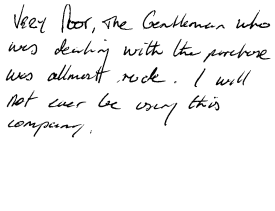 Very Poor, The Gentleman who
was dealing with the purchase
was allmost rude. I will
not ever be using this
company.